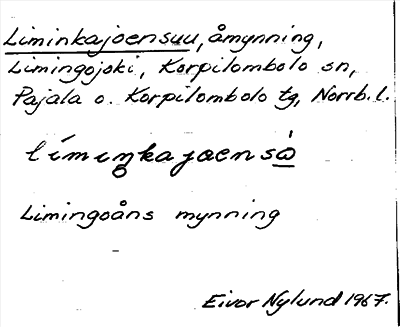 Liminkajoensuu, åmynning,
Limingojoki, Korpilombolo sn,
Pajala o. Korpilombolo tg, Norrb. l.
líminŋkajoensù̯
Limingoåns mynning
Eivor Nylund 1967.